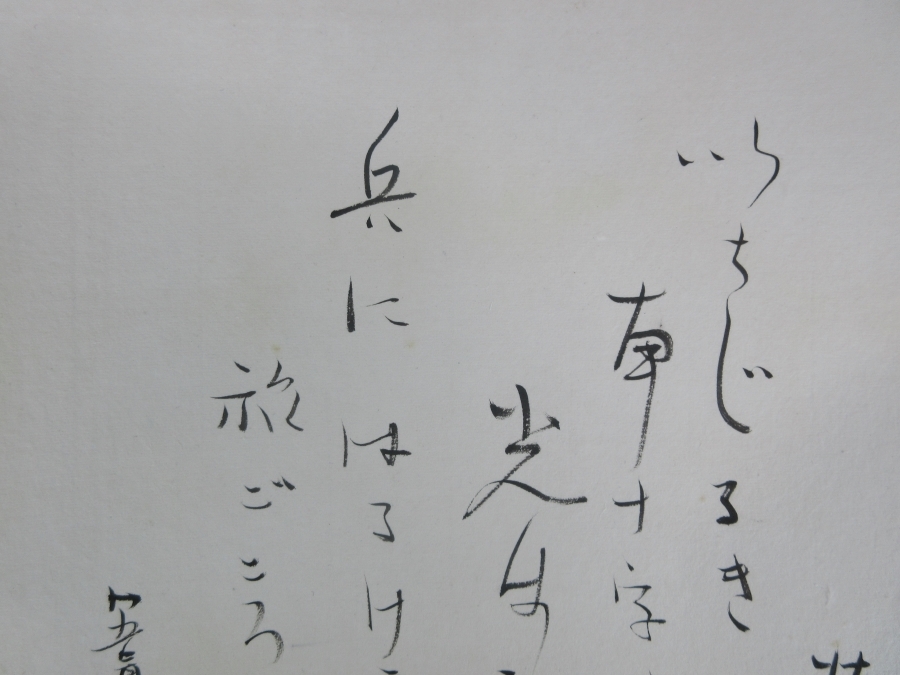 いちじるき
南十字
光
兵にはるけ
旅ごころ